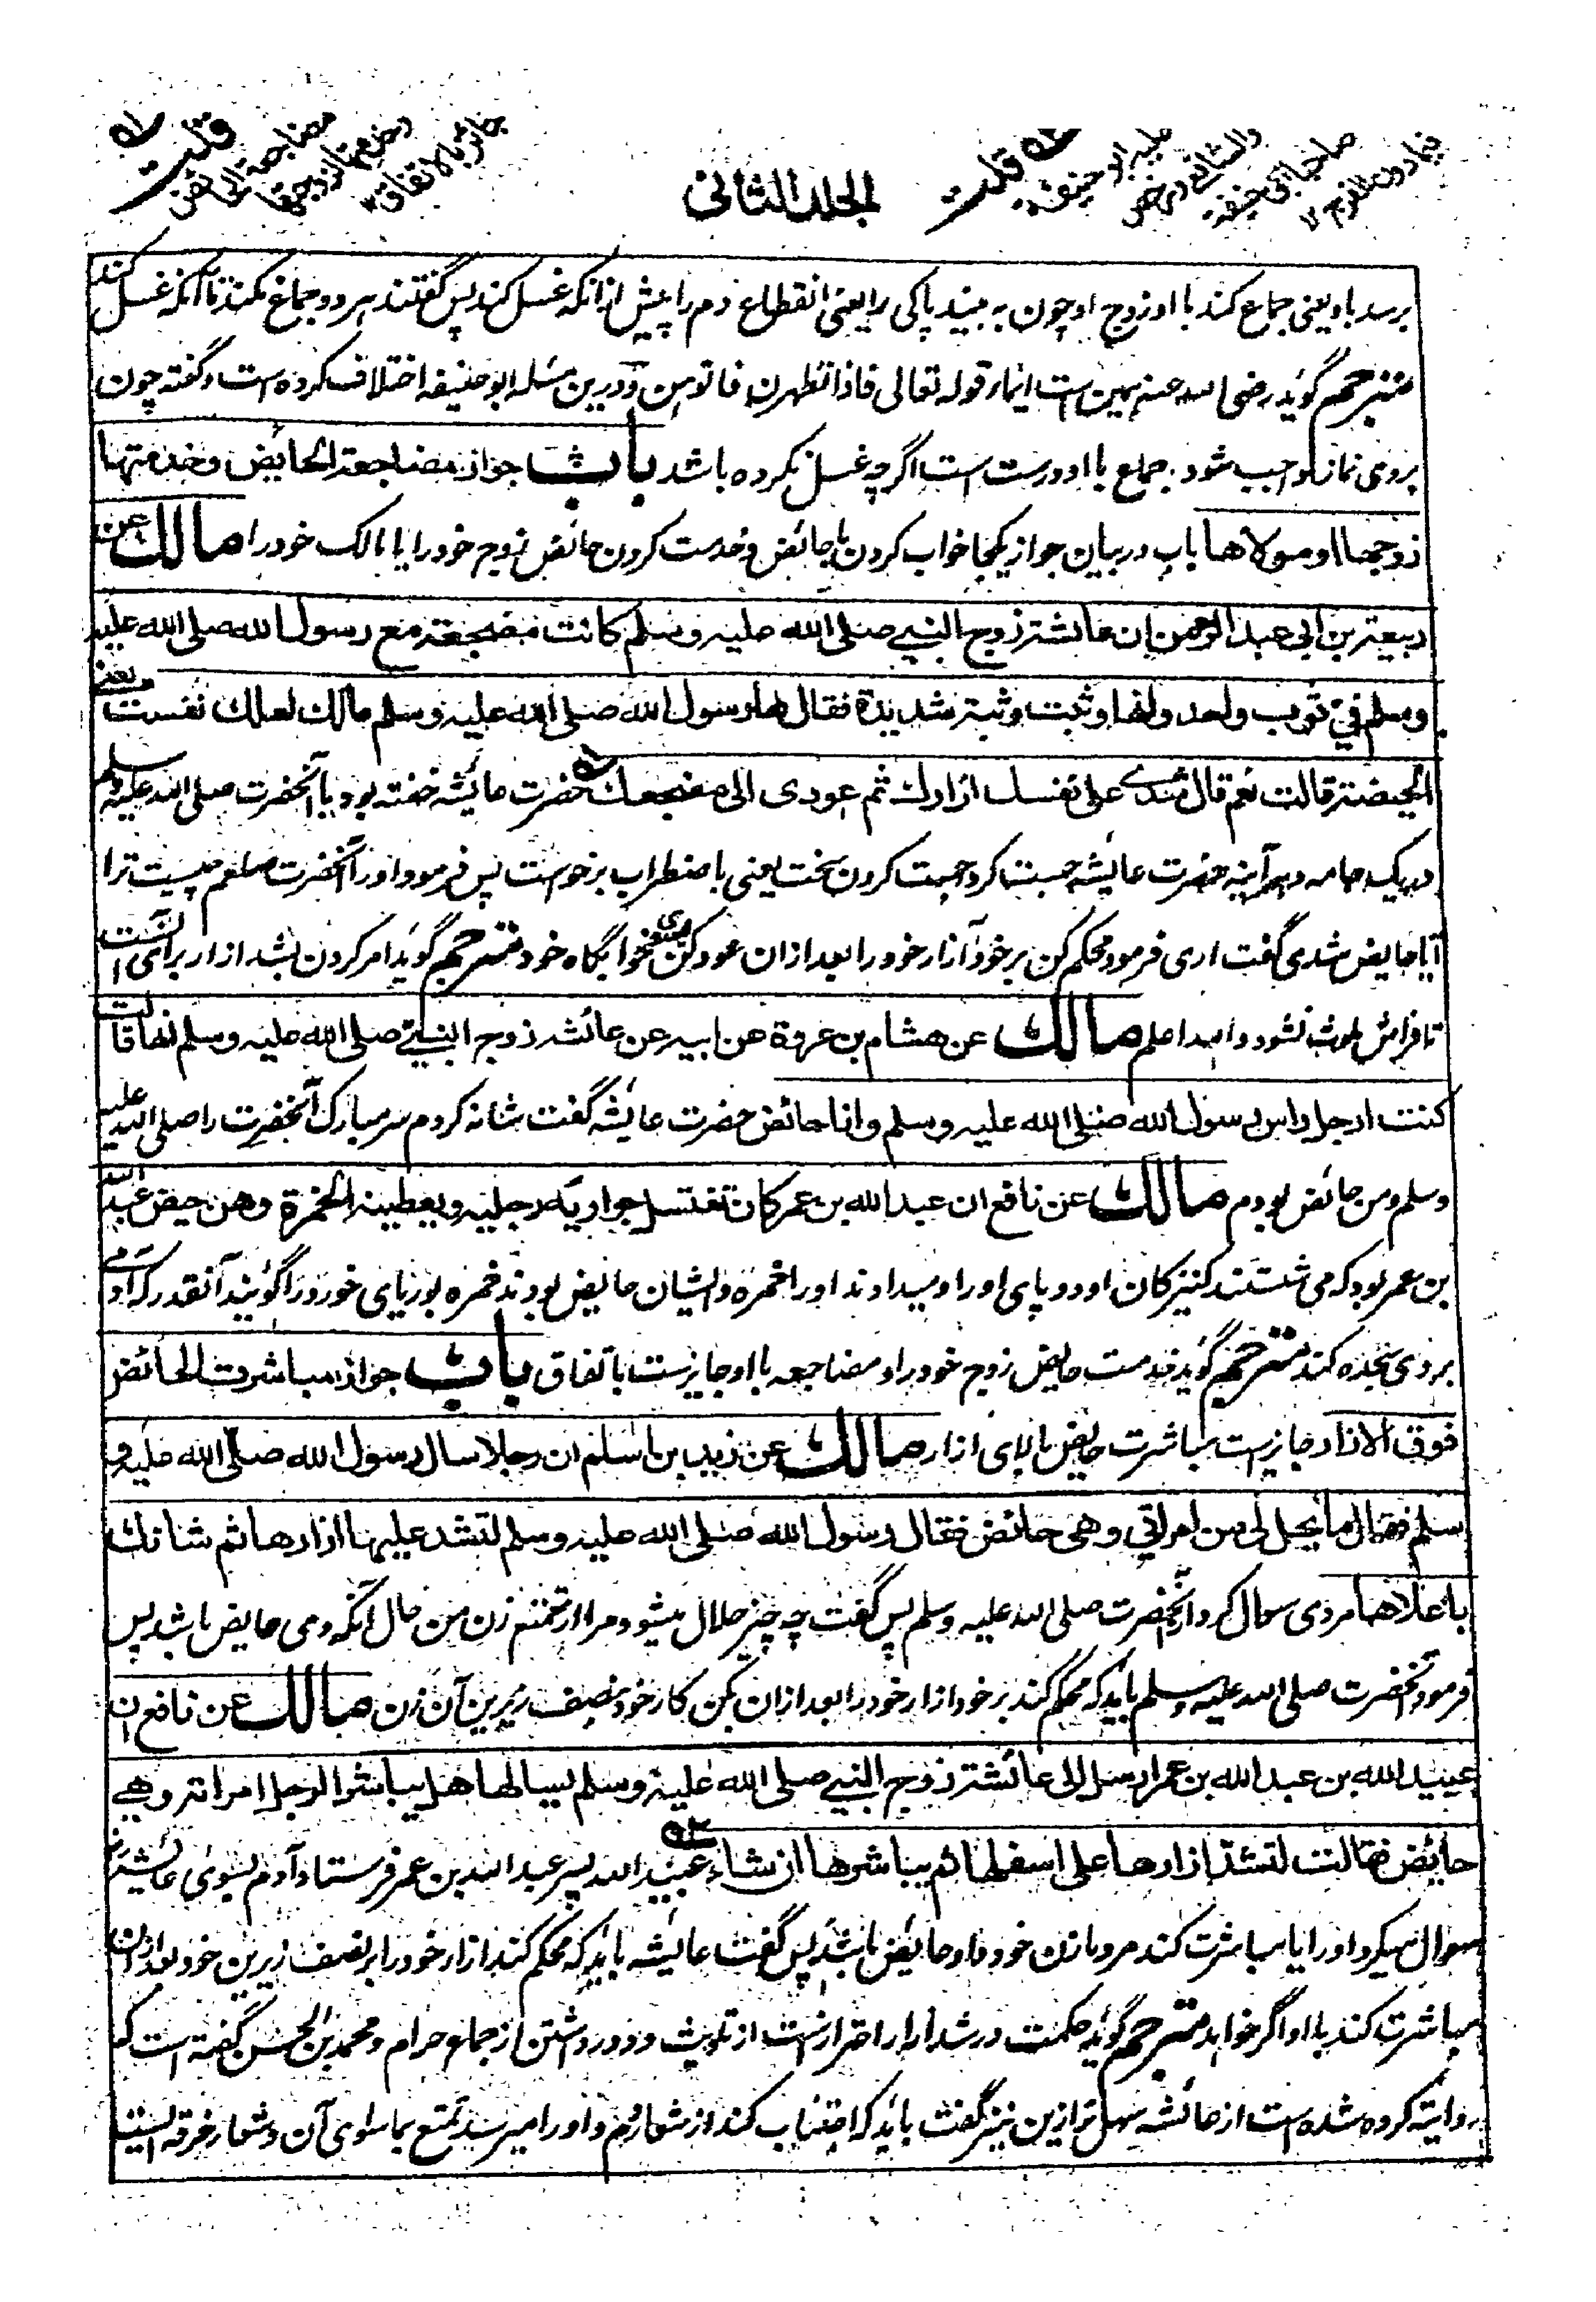 الجلد الثانی
۵۱ قلت
مضاجعة الحائض
و خدمتها زوجها
جائز بالاتفاق
۵۲ قلت
علیه ابو حنیفة
والشافعی و رخص
صاحبا ابی حنیفة
فیما دون الفرج ۱۲
برسد باو یعنی جماع کند با او زوج او چون به بیند پاکی را یعنی انقطاع دم را پیش از انکه غسل کند پس گفتند هر دو جماع نکند تا آنکه غسل کند
مترجم گوید رضی الله عنه همین است ایماء قوله تعالی فاذا تطهرن فاتوهن و درین مسئله ابو حنیفه اختلاف کرده است و گفته چون
بروی نماز واجب شود جماع با او درست است اگرچه غسل نکرده باشد باب جواز مضاجعة الحایض و خدمتها
زوجها او مولاها باب در بیان جواز یکجا خواب کردن با حائض و خدمت کردن حائض زوج خود را یا مالک خود را مالك عن
ربیعة بن ابی عبد الرحمن ان عائشة زوج النبی صلی الله علیه و سلم کانت مضجعة مع رسول الله صلی الله علیه
و سلم فی ثوب واحد وانها وثبت وثبة شدیدة فقال لها رسول الله صلی الله علیه و سلم مالك لعلك نفست یعنی
الحیضة قالت نعم قال شدی علی نفسك ازارك ثم عودی الی مضجعك ۵۱ حضرت عائشه خفته بود با آنحضرت صلی الله علیه و سلم
در یک جامه و هر آینه حضرت عایشه جست کرد جست کردن سخت یعنی با ضطراب برخواست پس فرمود او را آنحضرت صلعم چیست ترا
آیا حایض شدی گفت اری فرمود محکم کن بر خود آزار خود را بعد ازان عود کن بسوی خوابگاه خود مترجم گوید امر کردن بشد ازار برای آنست
تا فراش ملوث نشود والله اعلم مالك عن هشام بن عروة عن ابیه عن عائشة زوج النبی صلی الله علیه و سلم انها قالت
کنت ارجل راس رسول الله صلی الله علیه و سلم وانا حائض حضرت عایشه گفت شانه کردم سر مبارک آنحضرت را صلی الله علیه
وسلم ومن حائض بودم مالك عن نافع ان عبد الله بن عمر کان تغتسل جواریه رجلیه و یعطینه الخمرة وهن حیض عبد الله
بن عمر بود که می شستند کنیزکان او دو پای او را و میدادند او را خمره و ایشان حایض بودند خمره بوریای خورد را گویند آنقدر که آدمی
بروی سجده کند مترجم گوید خدمت حایض زوج خود را و مضاجعه با او جایزست باتفاق باب جواز مباشرت الحائض
فوق الازار جایزست مباشرت حایض بالای ازار مالك عن زید بن اسلم ان رجلا سال رسول الله صلی الله علیه و
سلم فقال ما یحل لی من امراتی وهی حائض فقال رسول الله صلی الله علیه و سلم لتشد علیها ازارها ثم شانك
باعلاها مردی سوال کرد از آنحضرت صلی الله علیه وسلم پس گفت چه چیز حلال میشود مرا از تمتع زن من حال آنکه وی حایض باشد پس
فرمود آنحضرت صلی الله علیه وسلم باید که محکم کند بر خود ازار خود را بعد ازان بکن کار خود بنصف زیرین آن زن مالك عن نافع ان
عبید الله بن عبد الله بن عمر ارسل الی عائشة زوج النبی صلی الله علیه وسلم یسالها هل یباشر الرجل امراته وهی
حائض فقالت لتشد ازارها علی اسفلها ثم یباشرها ان شاء ۵۲ عبید الله پسر عبد الله بن عمر فرستاد آدم بسوی عایشه
سوال میکرد او را ایا مباشرت کند مرد بازن خود و او حایض باشد پس گفت عایشه باید که محکم کند ازار خود را بر نصف زیرین خود بعد ازان
مباشرت کند با او اگر خواهد مترجم گوید حکمت در شد ازار احترازست از تلویث و دور داشتن از جماع حرام و محمد بن الحسن گفته است که
روایته کرده شده است از عائشه سهل تر ازین نیز گفت باید که اجتناب کند از شعار دم و او را میرسد تمتع بماسوای آن و شعار خرقه ایست